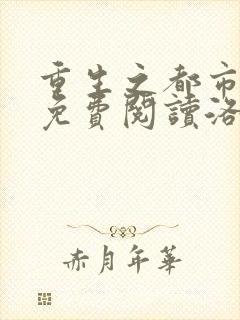 重生之都市
免費閱讀洛
赤月年華